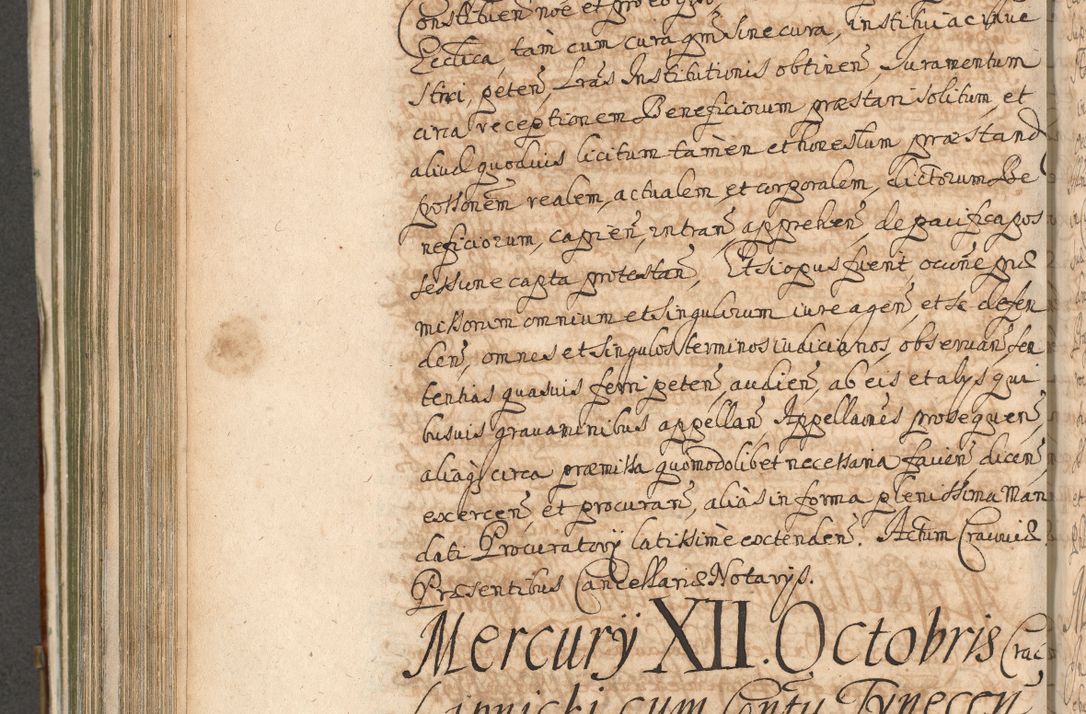 Constituen̄ noē et pro eo qm̄,
Ecctica, tàm cum cura qm̄ sine cura, institui ac inue
stiri, peten̄, Lrās Institutionis obtinen̄, Iuramentum
circa receptionem Beneficiorum præstari solitum, et
aliud quoduis licitum tamen et honestum præstand
possonēm realem, actualem, et corporalem, dictorum Be
neficiorum, capien̄, intran̄, apprehen̄, de pacifica pos
sessione capta protestan̄, Et si opus fuerit occōne præ
missorum omnium et singulorum iure agen̄, et se defen
den̄, omnes et singulos terminos iudiciarios, obseruan̄, sen
tentias quasuis ferri peten̄, audien̄, ab eis et alijs qui
busuis grauaminibus appellan̄ Appellaōnes prosequen̄,
aliaq; circa præmissa quomodolibet necessaria facien̄, dicen̄,
exercen̄, et procuran̄, aliàs in forma plenissima Man
dati Procuratorij latissimè extenden̄. Actum Cracouiæ
Præsentibus Cancellariæ Notarijs.
Mercurij XII. Octobris Crac
Lipnicki cum Conttu Tynecen̄